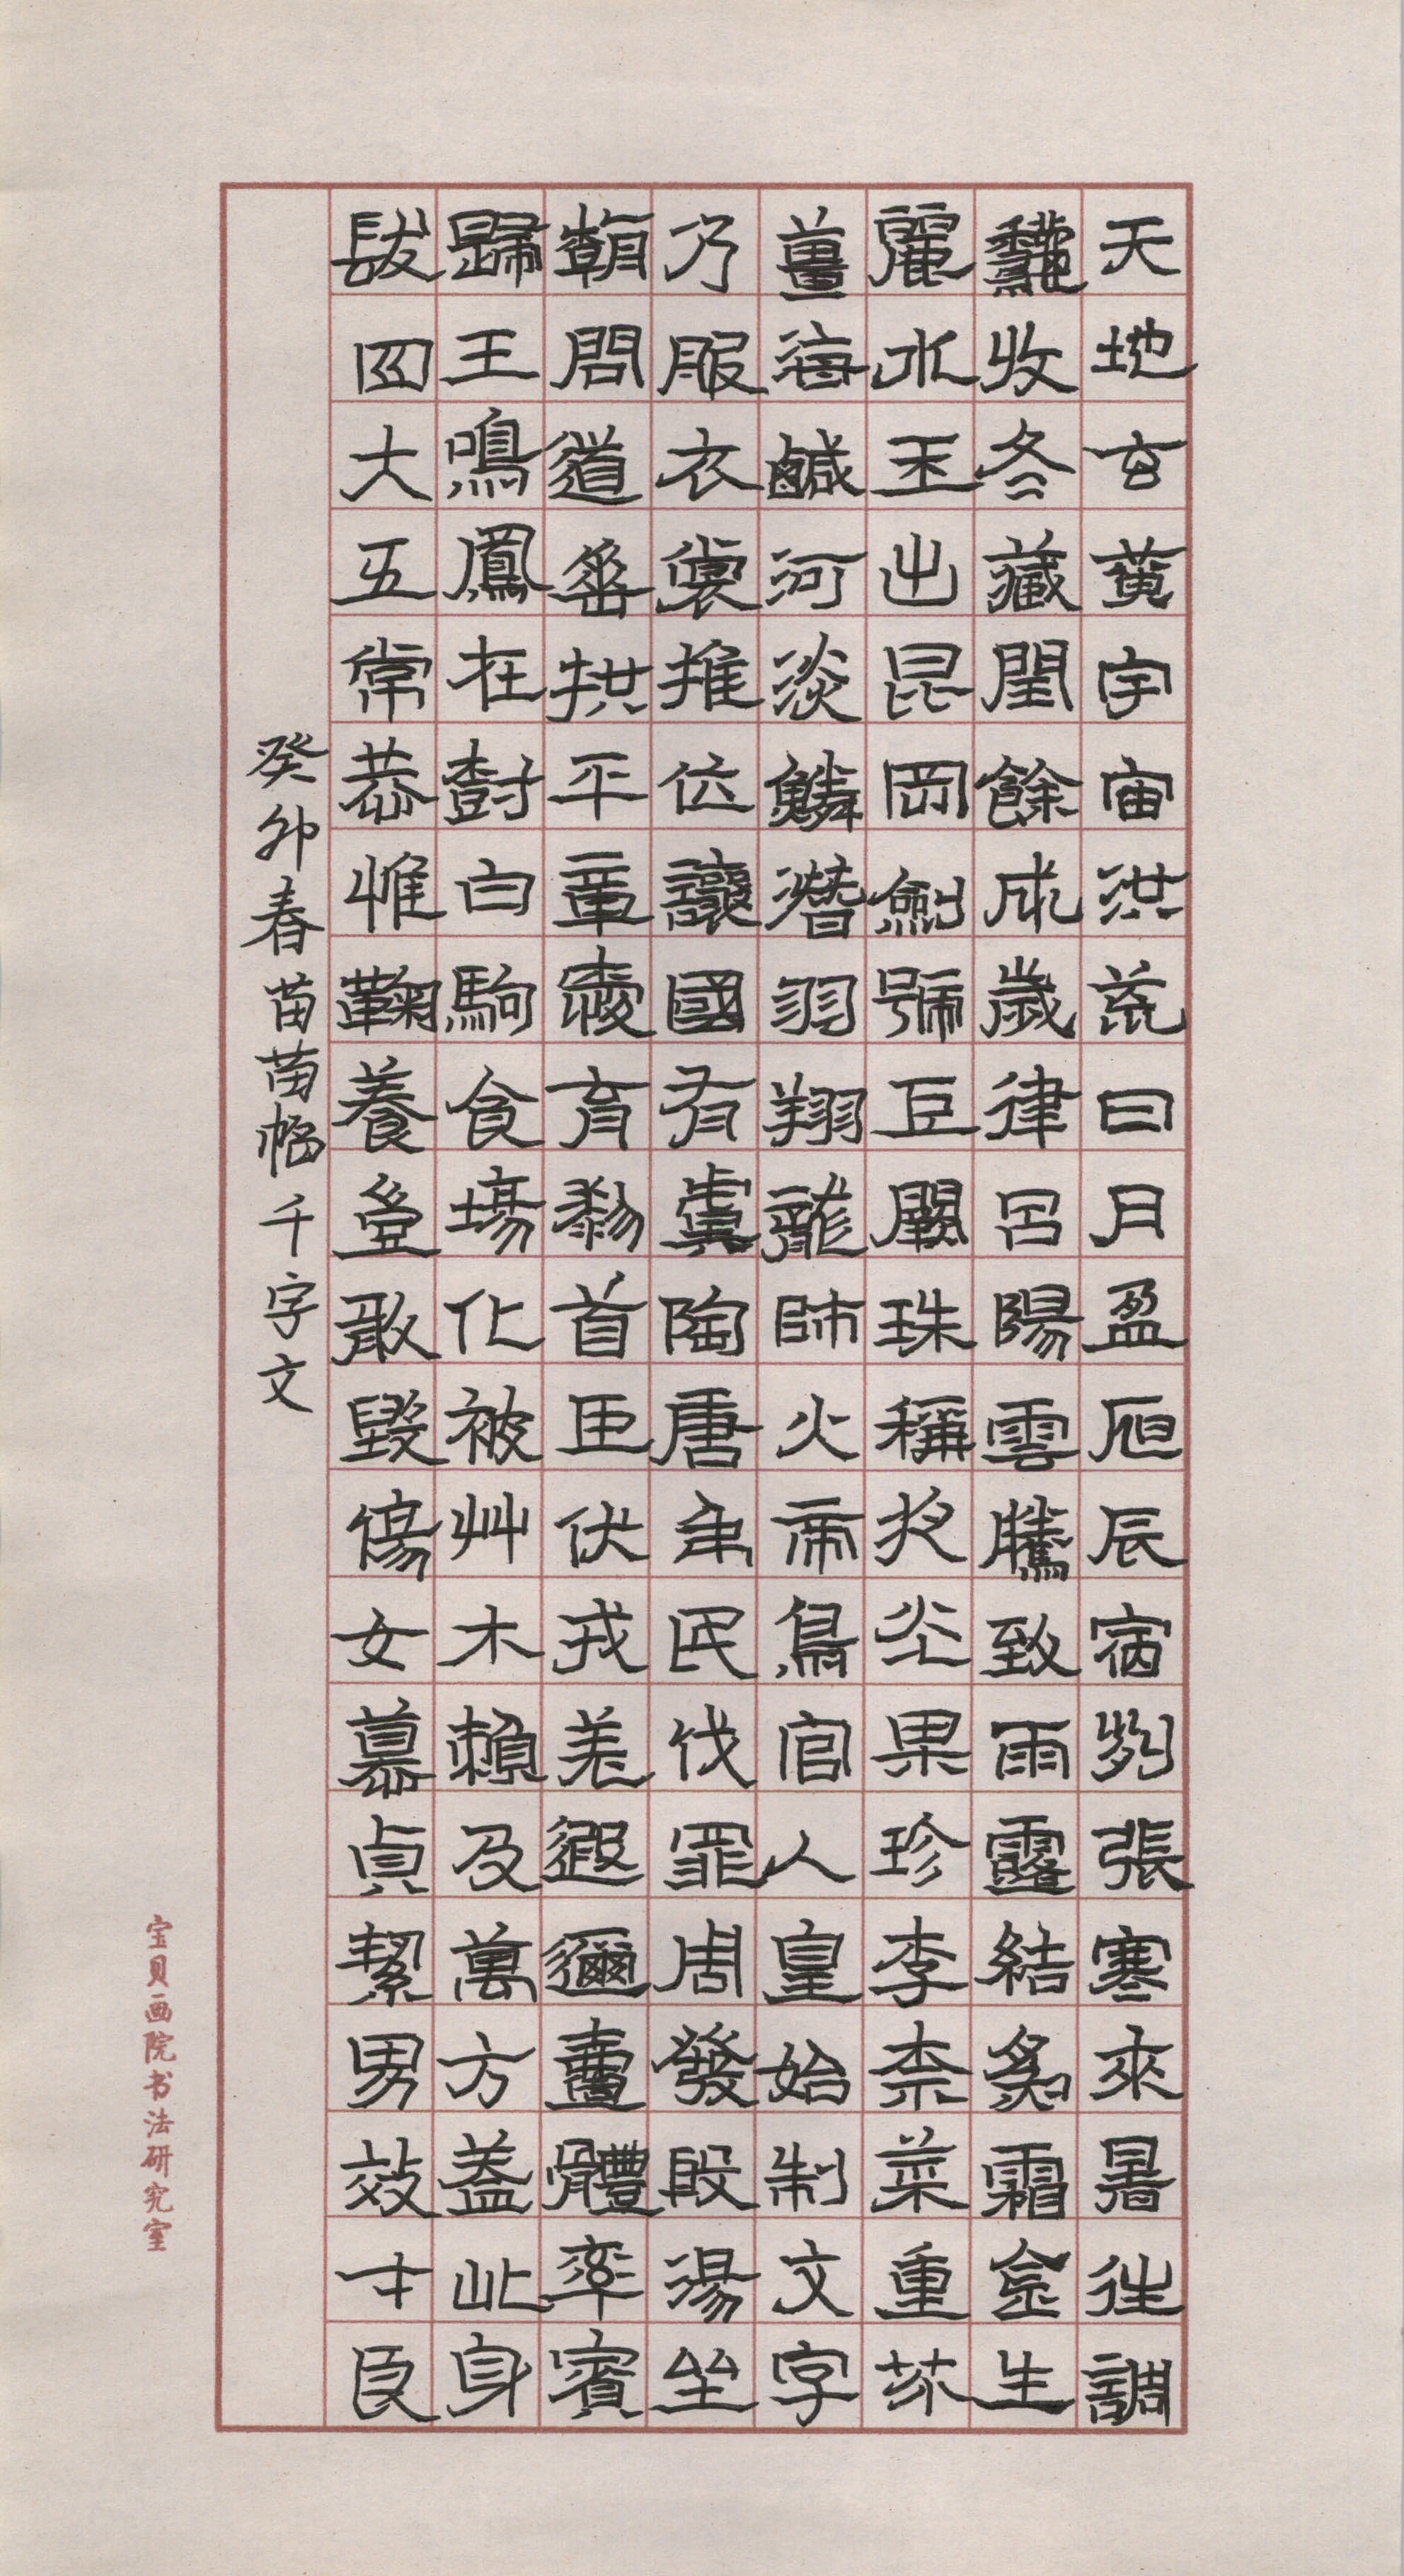 天地玄黃宇宙洪荒日月盈昃辰宿列張寒來暑往調
龝收冬藏閏餘成歲律呂陽雲騰致雨露結為霜金生
麗水玉出昆岡劍號巨闕珠稱夜光果珍李柰菜重芥
薑海鹹河淡鱗潛羽翔龍師火帝鳥官人皇始制文字
乃服衣裳推位讓國有虞陶唐弔民伐罪周發殷湯坐
朝問道垂拱平章愛育黎首臣伏戎羌遐邇壹體率賓
歸王鳴鳳在樹白駒食場化被艸木賴及萬方蓋此身
髮四大五常恭惟鞠養豈敢毀傷女慕貞絜男效才良
癸卯春苗苗临千字文
宝贝画院书法研究室